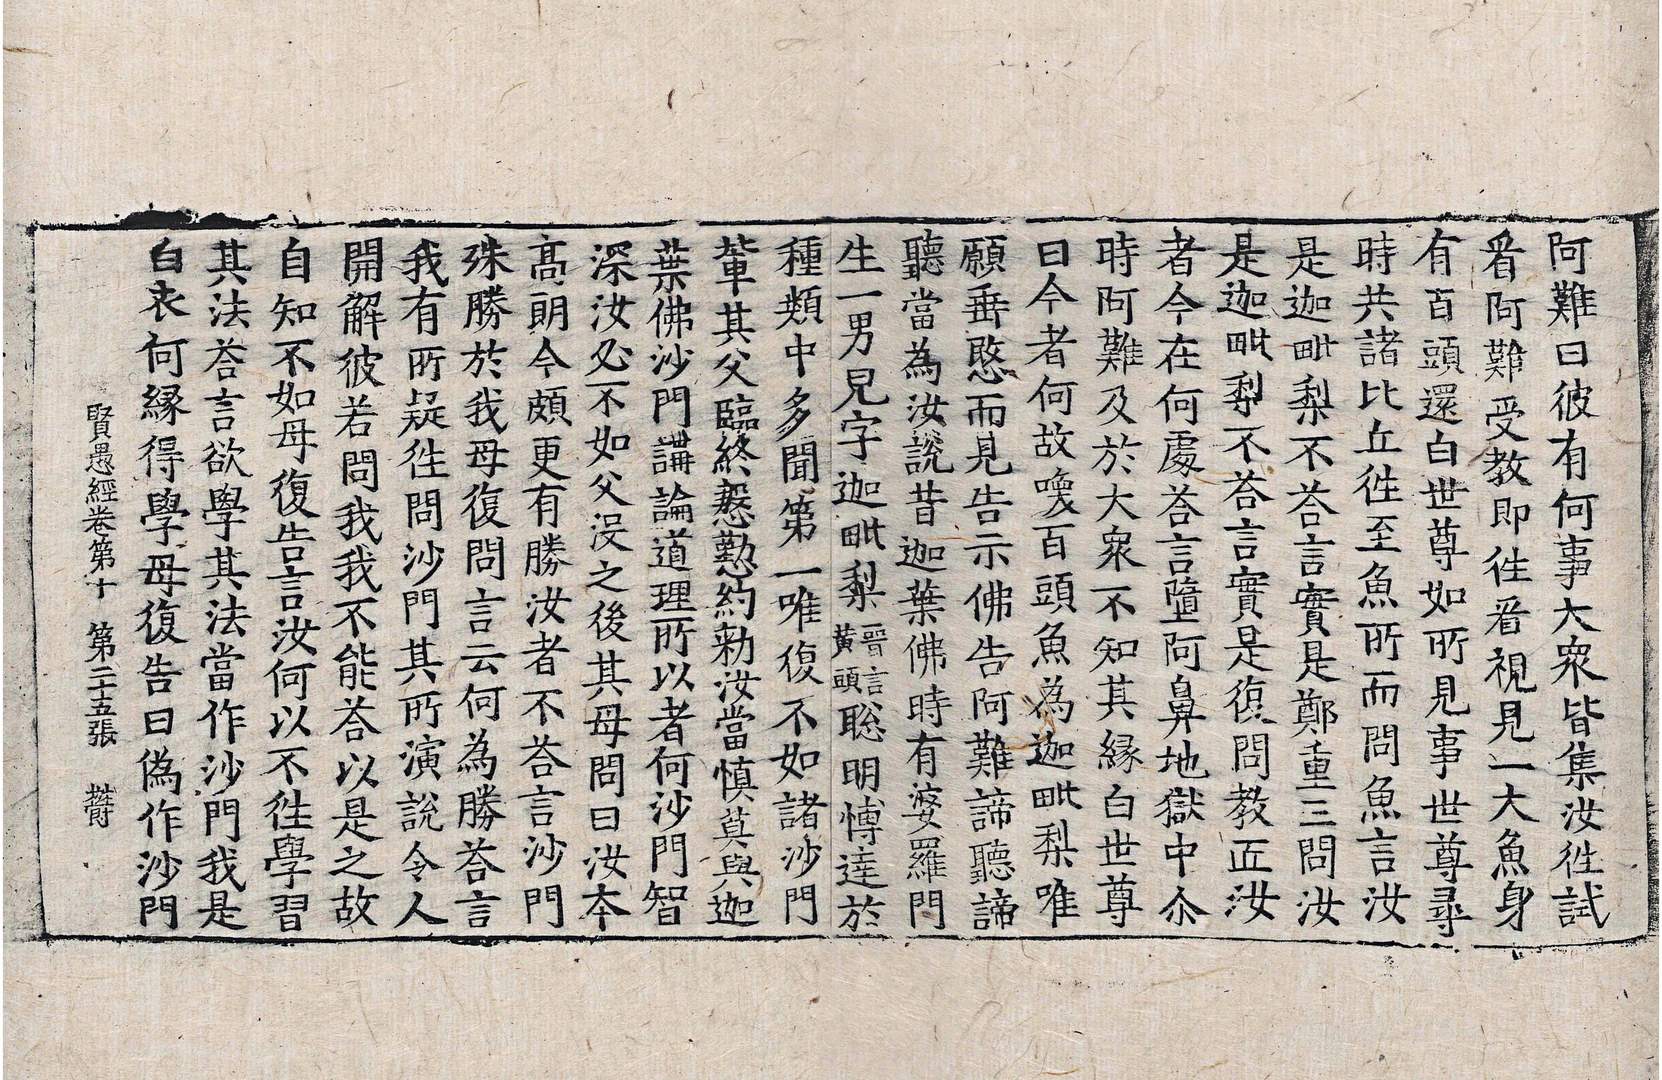 阿難曰彼有何事大衆皆集汝徃試
看阿難受教即徃看視見一大魚身
有百頭還白世尊如所見事世尊尋
時共諸比丘徃至魚所而問魚言汝
是迦毗梨不荅言實是鄭重三問汝
是迦毗梨不荅言實是復問教匠汝
者今在何處荅言墮阿鼻地獄中尒
時阿難及於大衆不知其縁白世尊
曰今者何故喚百頭魚為迦毗梨唯
願垂愍而見告示佛告阿難諦聽諦
聽當為汝說昔迦葉佛時有婆羅門
生一男兒字迦毗梨晉言黄頭聡明慱達於
種類中多聞第一唯復不如諸沙門
輩其父臨終慇懃約勑汝當慎莫與迦
葉佛沙門講論道理所以者何沙門智
深汝必不如父没之後其母問曰汝本
高朗今頗更有勝汝者不荅言沙門
殊勝於我母復問言云何為勝荅言
我有所疑徃問沙門其所演說令人
開解彼若問我我不能荅以是之故
自知不如母復告言汝何以不徃學習
其法荅言欲學其法當作沙門我是
白衣何縁得學母復告曰偽作沙門
賢愚經卷第十 第二十五張